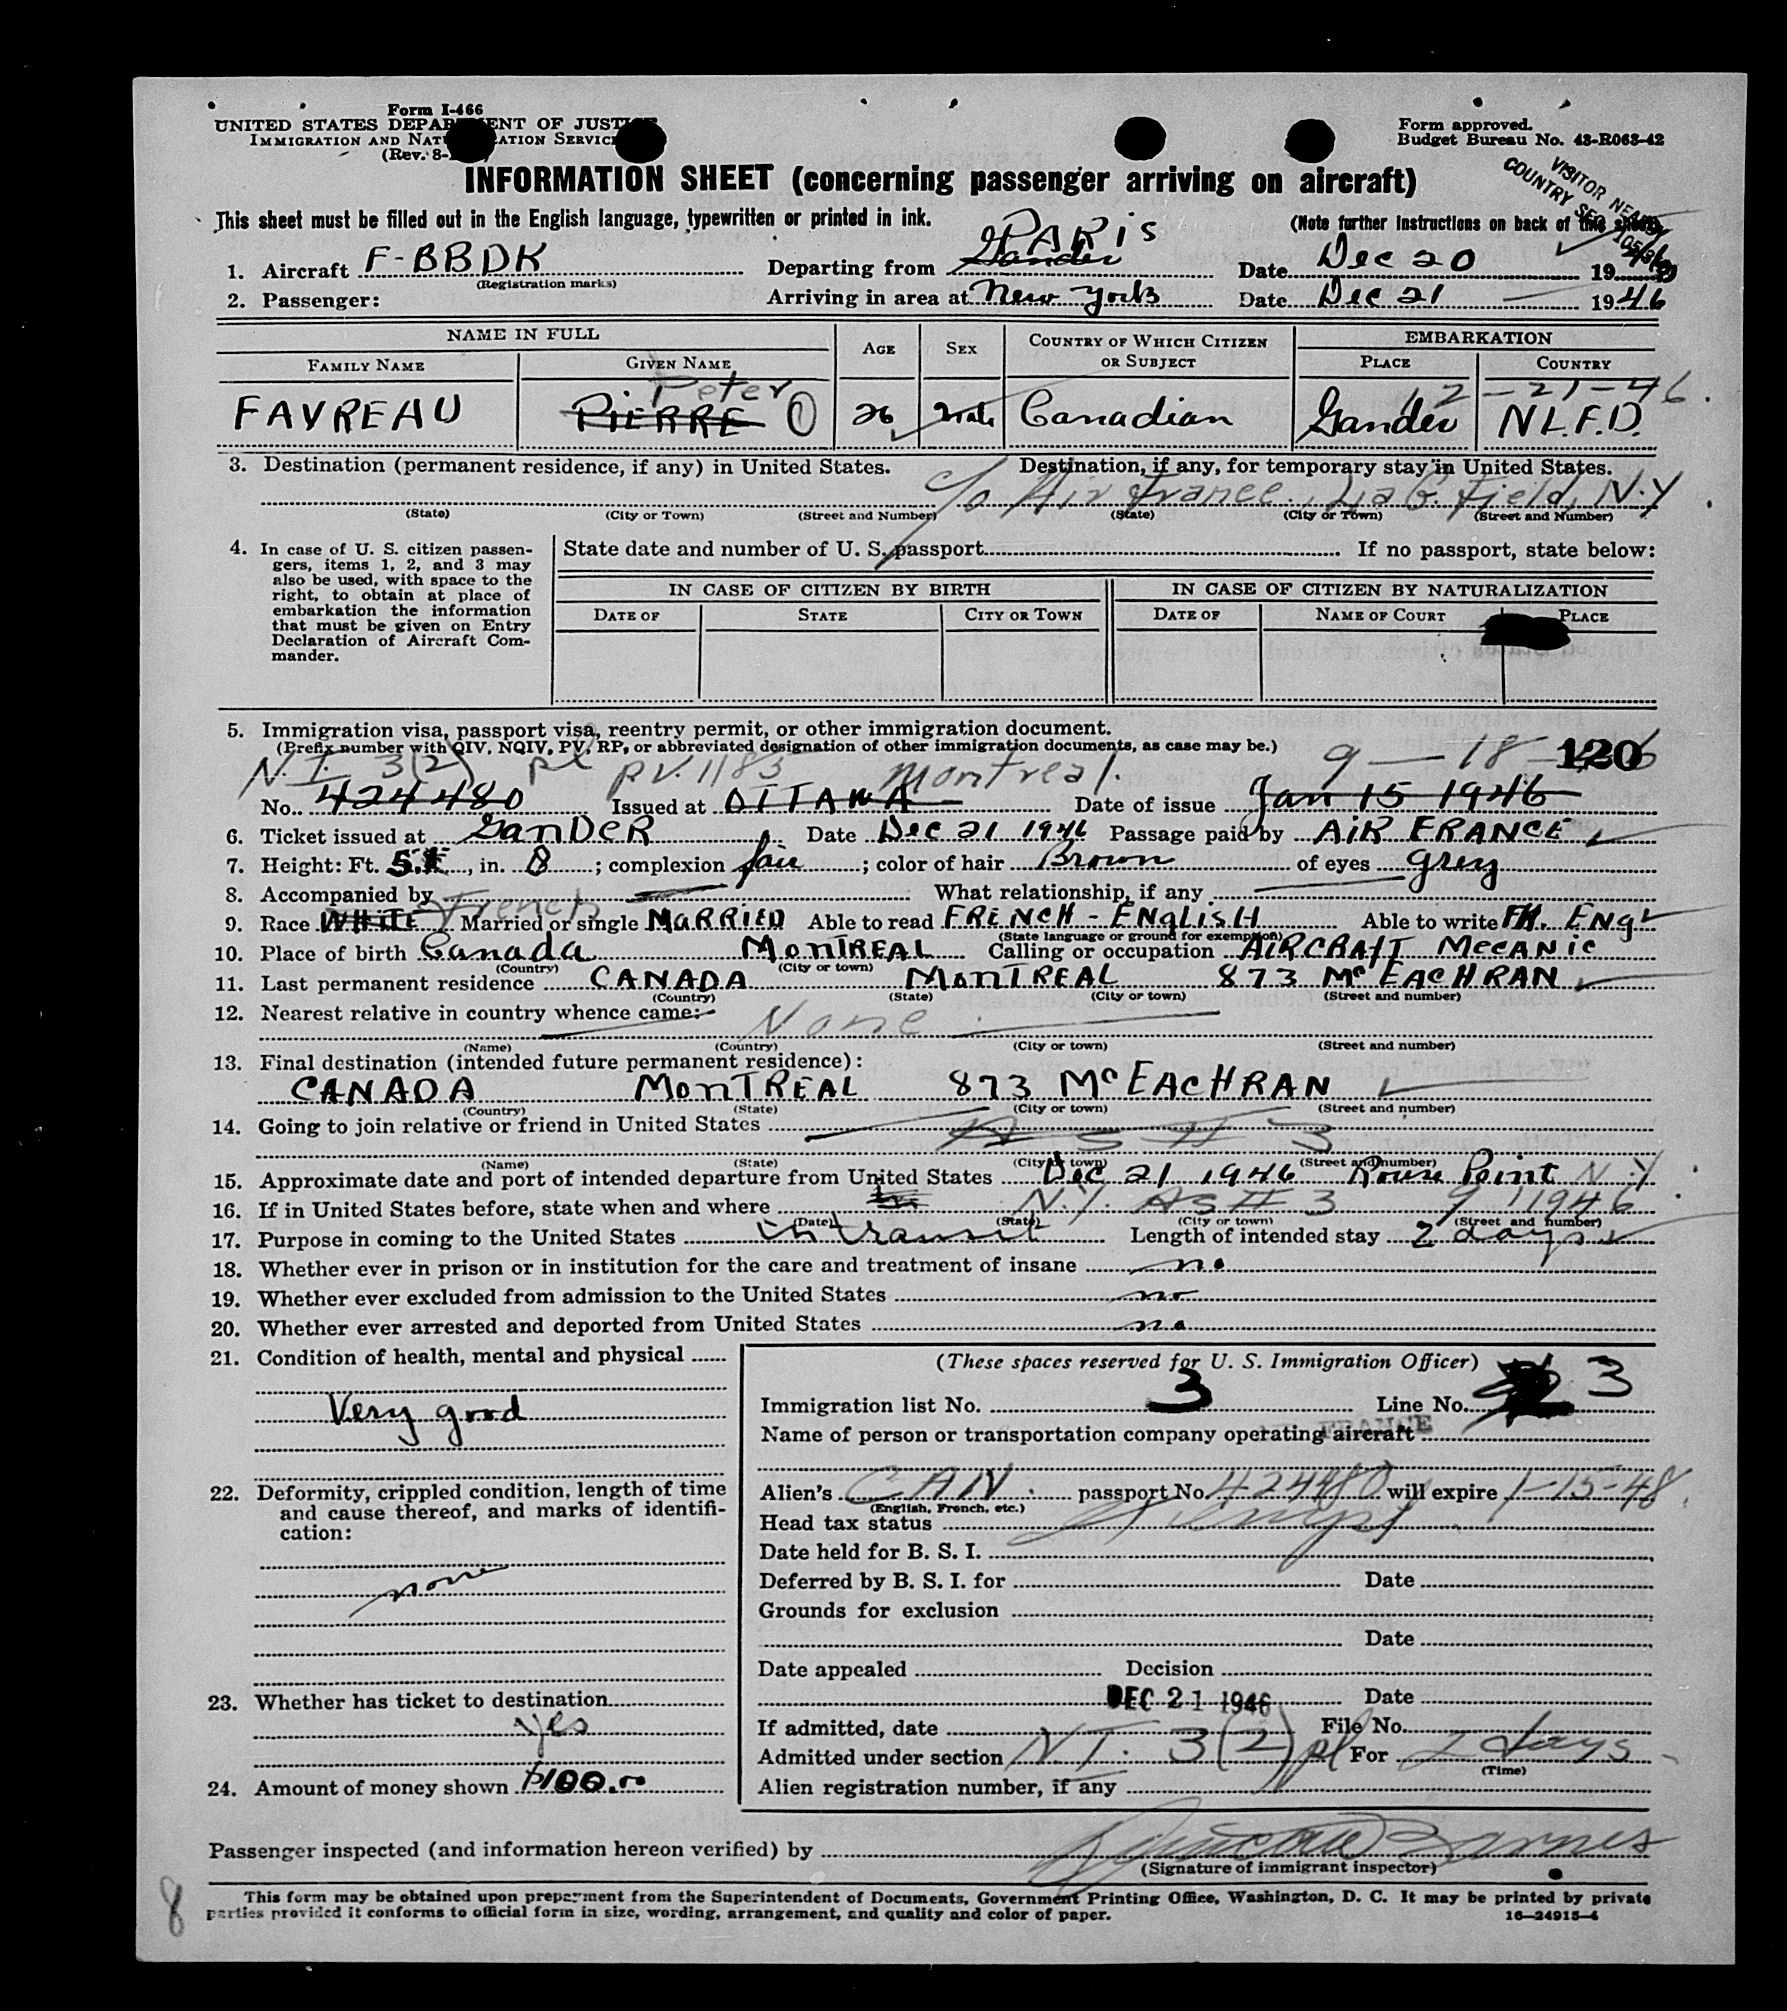 Form I-466
UNITED STATES DEPARTMENT OF JUSTICE
IMMIGRATION AND NATURALIZATION SERVICE
(Rev. 8-
Form approved.
Budget Bureau No. 43-R063-42
VISITOR NEAR
COUNTRY SEC
INFORMATION SHEET (concerning passenger arriving on aircraft)
This sheet must be filled out in the English language, typewritten or printed in ink. (Note further instructions on back of this sheet)
1. Aircraft F-BBDK Departing from Gander PARIS Date Dec 20 19
(Registration marks)
2. Passenger: Arriving in area at New York Date Dec 21 1946
NAME IN FULL AGE SEX COUNTRY OF WHICH CITIZEN OR SUBJECT EMBARKATION
FAMILY NAME GIVEN NAME PLACE COUNTRY
Peter 12-21-46.
FAVREAU PIERRE 26 Male Canadian Gander NL.F.D.
3. Destination (permanent residence, if any) in United States. Destination, if any, for temporary stay in United States.
c/o Air France, LaG. Field, N.Y.
(State) (City or Town) (Street and Number) (State) (City or Town) (Street and Number)
4. In case of U. S. citizen passen-
gers, items 1, 2, and 3 may
also be used, with space to the
right, to obtain at place of
embarkation the information
that must be given on Entry
Declaration of Aircraft Com-
mander.
State date and number of U. S. passport If no passport, state below:
IN CASE OF CITIZEN BY BIRTH IN CASE OF CITIZEN BY NATURALIZATION
DATE OF STATE CITY OR TOWN DATE OF NAME OF COURT PLACE
5. Immigration visa, passport visa, reentry permit, or other immigration document.
(Prefix number with QIV, NQIV, PV, RP, or abbreviated designation of other immigration documents, as case may be.)
N.I. 3(2) pl PV. 1183 Montreal. 9-18- 120
No. 424480 Issued at OTTAWA Date of issue Jan 15 1946
6. Ticket issued at GANDER Date Dec 21 1946 Passage paid by AIR FRANCE
7. Height: Ft. 5, in. 8; complexion fair; color of hair Brown of eyes grey
8. Accompanied by What relationship, if any
9. Race WHITE French Married or single MARRIED Able to read FRENCH - ENGLISH Able to write FH. ENG
(State language or ground for exemption)
10. Place of birth Canada MONTREAL Calling or occupation AIRCRAFT MECANIC
(Country) (City or town)
11. Last permanent residence CANADA MONTREAL 873 McEACHRAN
(Country) (State) (City or town) (Street and number)
12. Nearest relative in country whence came: None
(Name) (Country) (City or town) (Street and number)
13. Final destination (intended future permanent residence):
CANADA MONTREAL 873 McEACHRAN
(Country) (State) (City or town) (Street and number)
14. Going to join relative or friend in United States
AS # 3
(Name) (State) (City or town) (Street and number)
15. Approximate date and port of intended departure from United States Dec 21 1946 Rouse Point N.Y.
16. If in United States before, state when and where N.Y. AS # 3 9 1946
(Date) (State) (City or town) (Street and number)
17. Purpose in coming to the United States in transit Length of intended stay 2 days
18. Whether ever in prison or in institution for the care and treatment of insane no
19. Whether ever excluded from admission to the United States no
20. Whether ever arrested and deported from United States no
21. Condition of health, mental and physical
Very good
22. Deformity, crippled condition, length of time
and cause thereof, and marks of identifi-
cation:
none
23. Whether has ticket to destination
yes
24. Amount of money shown $100.00
(These spaces reserved for U. S. Immigration Officer)
Immigration list No. 3 Line No. 3
Name of person or transportation company operating aircraft FRANCE
Alien's CAN. passport No. 424480 will expire 1-15-48.
(English, French, etc.)
Head tax status
Date held for B. S. I.
Deferred by B. S. I. for Date
Grounds for exclusion
Date
Date appealed Decision
Date
If admitted, date DEC 21 1946 File No.
Admitted under section N.I. 3(2) pl For 2 days
(Time)
Alien registration number, if any
Passenger inspected (and information hereon verified) by Barnes
(Signature of immigrant inspector)
This form may be obtained upon prepayment from the Superintendent of Documents, Government Printing Office, Washington, D. C. It may be printed by private
parties provided it conforms to official form in size, wording, arrangement, and quality and color of paper.
16—24915-4
8